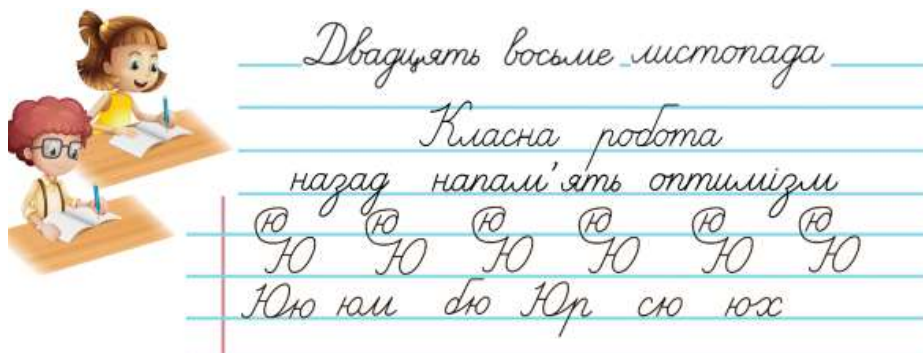 Двадцять восьме листопада
Класна робота
назад напам'ять оптимізм
ю ю ю ю ю ю
Ю Ю Ю Ю Ю Ю
Юю юм бю Юр сю юх